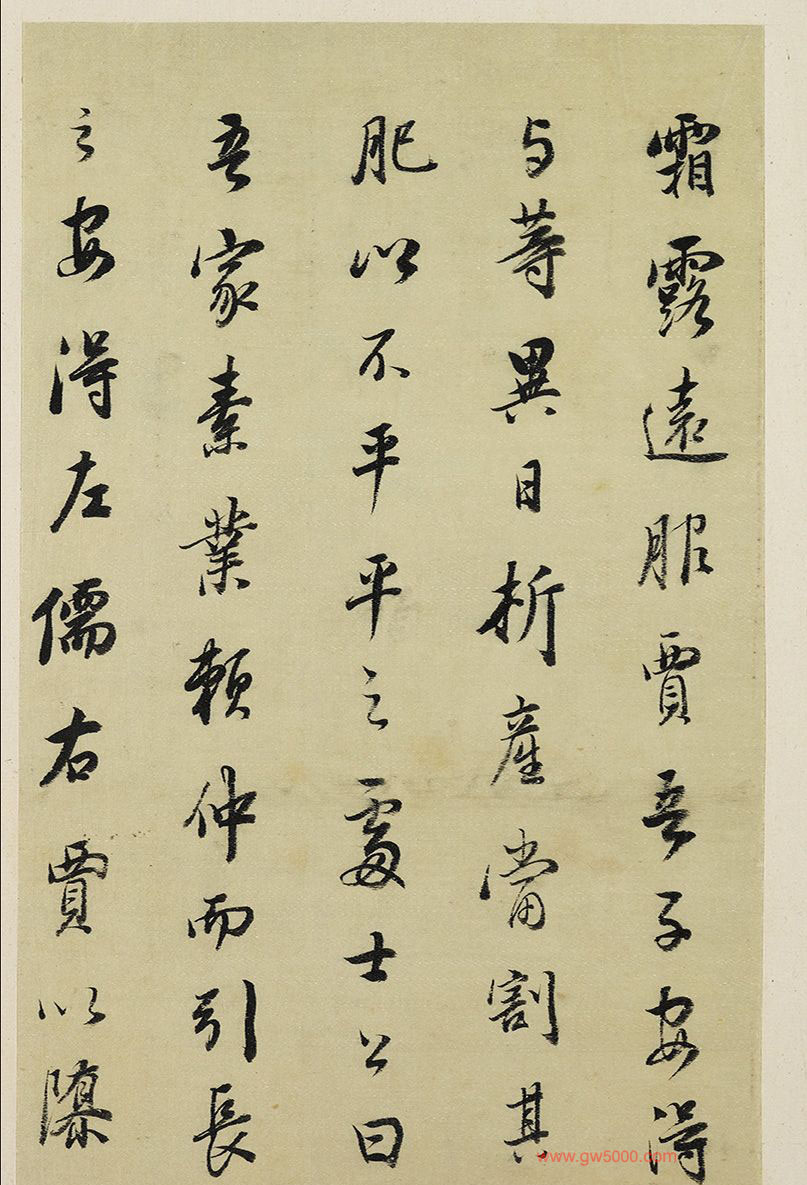 霜露遠服賈吾子安得
与等異日析產當割其
肥以不平平之處士公曰
吾家素業賴仲而引長
之安得左儒右賈以隳
www.gw5000.com